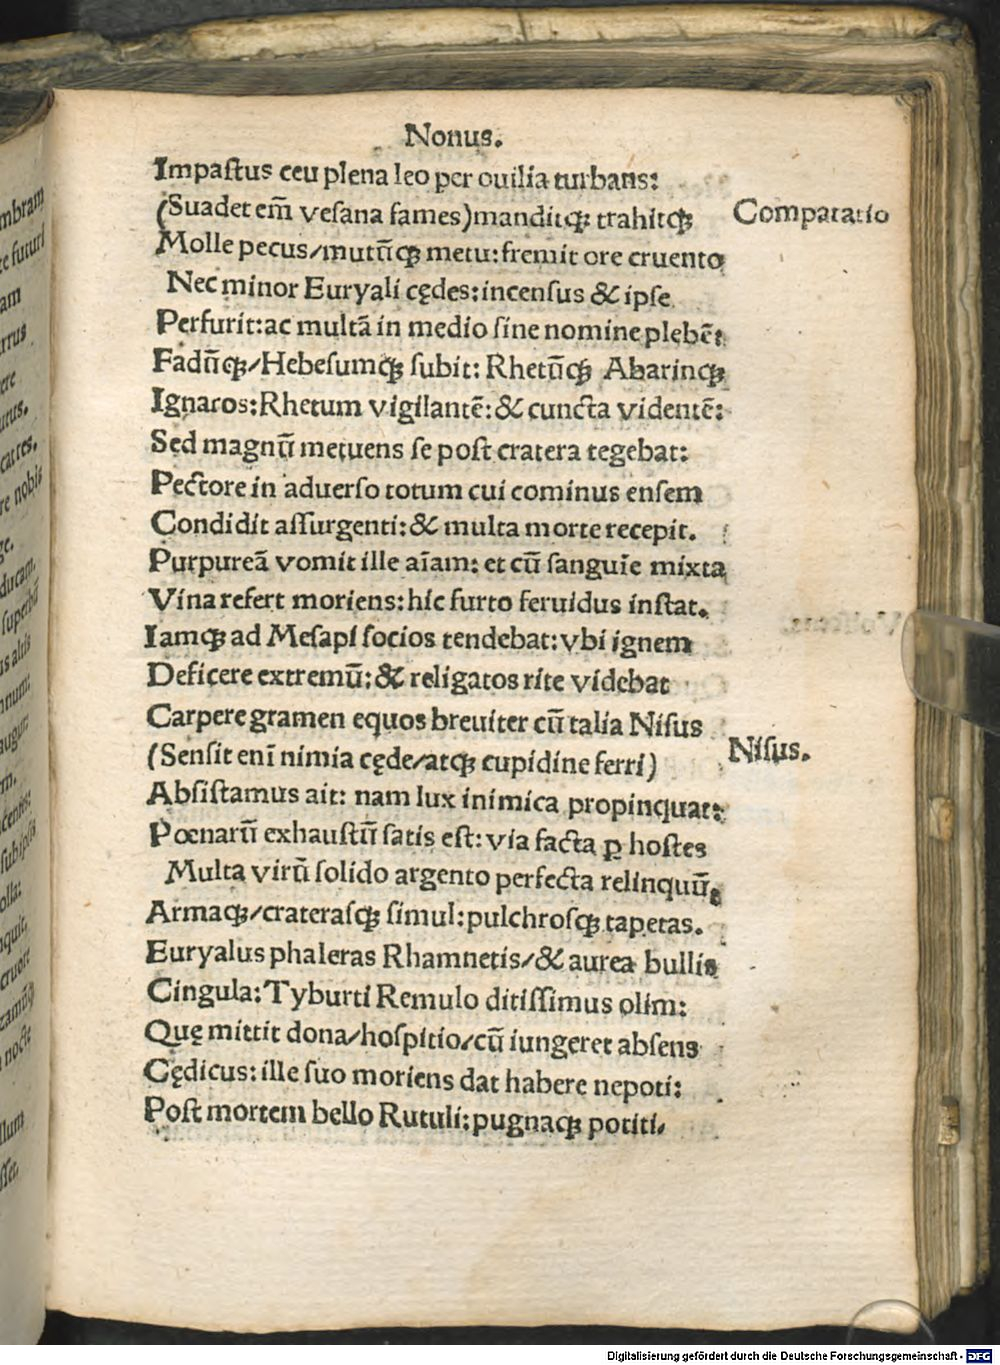 Nonus.
Impaſtus ceu plena leo per ouilia turbans:
(Suadet em̄ veſana fames)manditqꝫ trahitqꝫ
Comparatio
Molle pecus/mutūqꝫ metu:fremit ore cruento
Nec minor Euryali cędes:incenſus & ipſe
Perfurit:ac multā in medio ſine nomine plebē:
Fadūqꝫ/Hebeſumqꝫ ſubit: Rhetūqꝫ Abarinqꝫ
Ignaros:Rhetum vigilantē:& cuncta videntē:
Sed magnū metuens ſe poſt cratera tegebat:
Pectore in aduerſo totum cui cominus enſem
Condidit aſſurgenti:& multa morte recepit.
Purpureā vomit ille aīam: et cū ſanguīe mixta
Vina refert moriens:hic furto feruidus inſtat.
Iamqꝫ ad Meſapi ſocios tendebat:vbi ignem
Deficere extremū:& religatos rite videbat
Carpere gramen equos breuiter cū talia Niſus
(Senſit enī nimia cęde/atqꝫ cupidine ferri)
Niſus.
Abſiſtamus ait: nam lux inimica propinquat:
Pœnarū exhauſtū ſatis eſt:via facta ꝑ hoſtes
Multa virū ſolido argento perfecta relinquūt
Armaqꝫ/crateraſqꝫ ſimul:pulchroſqꝫ tapetas.
Euryalus phaleras Rhamnetis/& aurea bullis
Cingula:Tyburti Remulo ditiſſimus olim:
Quę mittit dona/hoſpitio/cū iungeret abſens
Cędicus:ille ſuo moriens dat habere nepoti:
Poſt mortem bello Rutuli:pugnaqꝫ potiti.
mbram
re futuri
am
rrus
ere
urus.
cattes.
re nobis
ge.
ducam.
ſuperbū
us altis
mnum:
m.
olla:
nquit,
cruori
nocte
llum
Digitalisierung gefördert durch die Deutsche Forschungsgemeinschaft - DFG